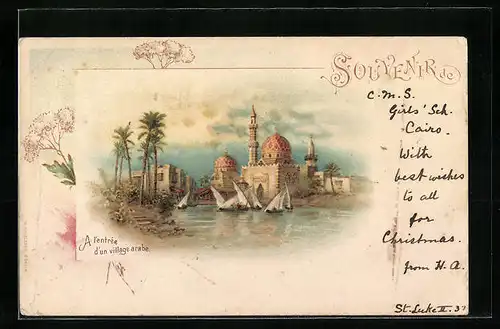 SOUVENIR de
C.M.S.
Girls' Sch.
Cairo.
With
best wishes
to all
for
Christmas.
from H.A.
St. Luke II. 32
A l'entrée
d'un village arabe.